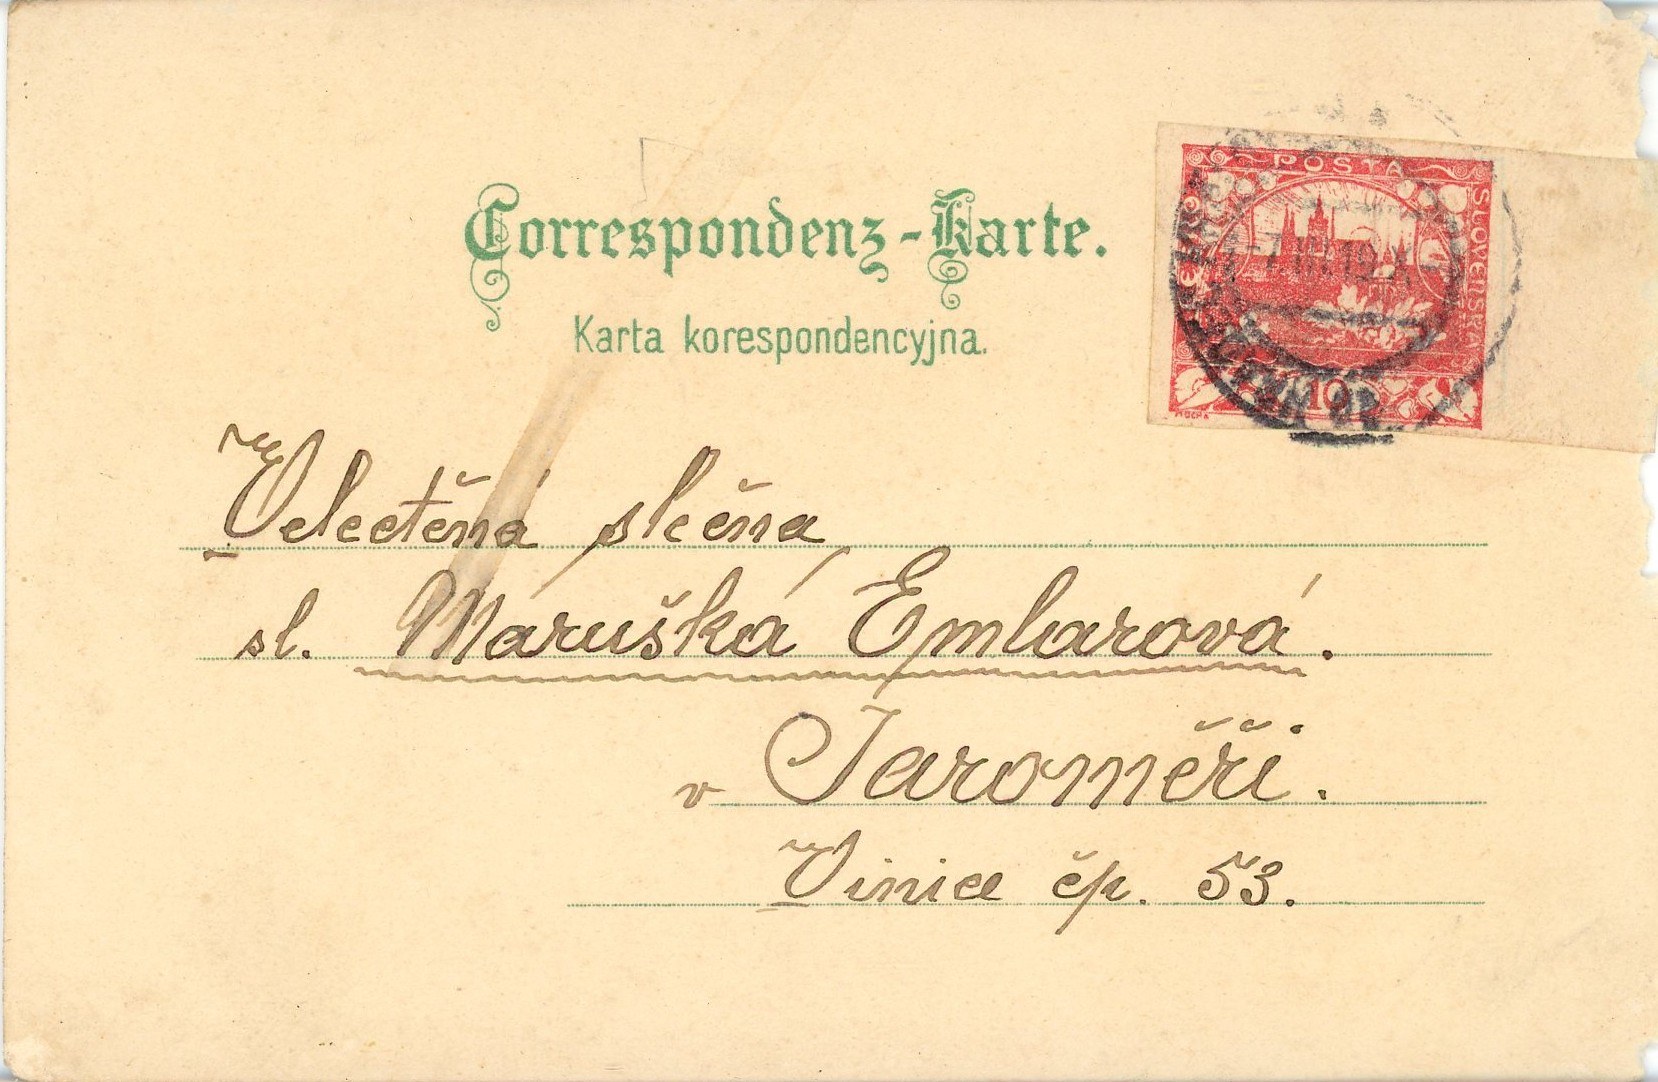 Correspondenz-Karte.
Karta korespondencyjna.
POSTA
SLOVENSKÁ
-7.III.19.X-
10
MUCHA
Velectěná slečna
sl. Máruška Embarová.
v Jaroměři.
Vinice čp. 53.